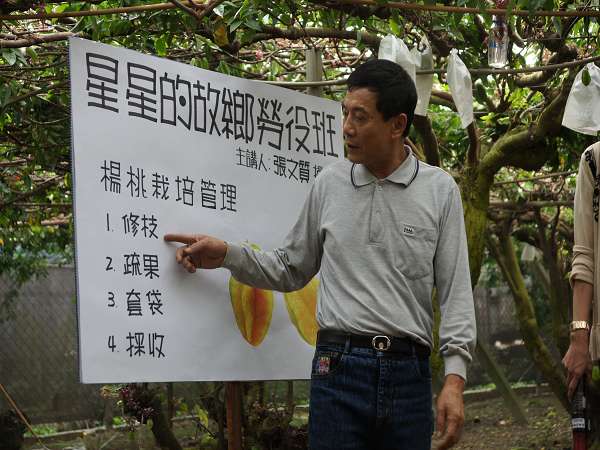 星星的故鄉勞役班
主講人:張文質
楊桃栽培管理
1. 修枝
2. 疏果
3. 套袋
4. 採收